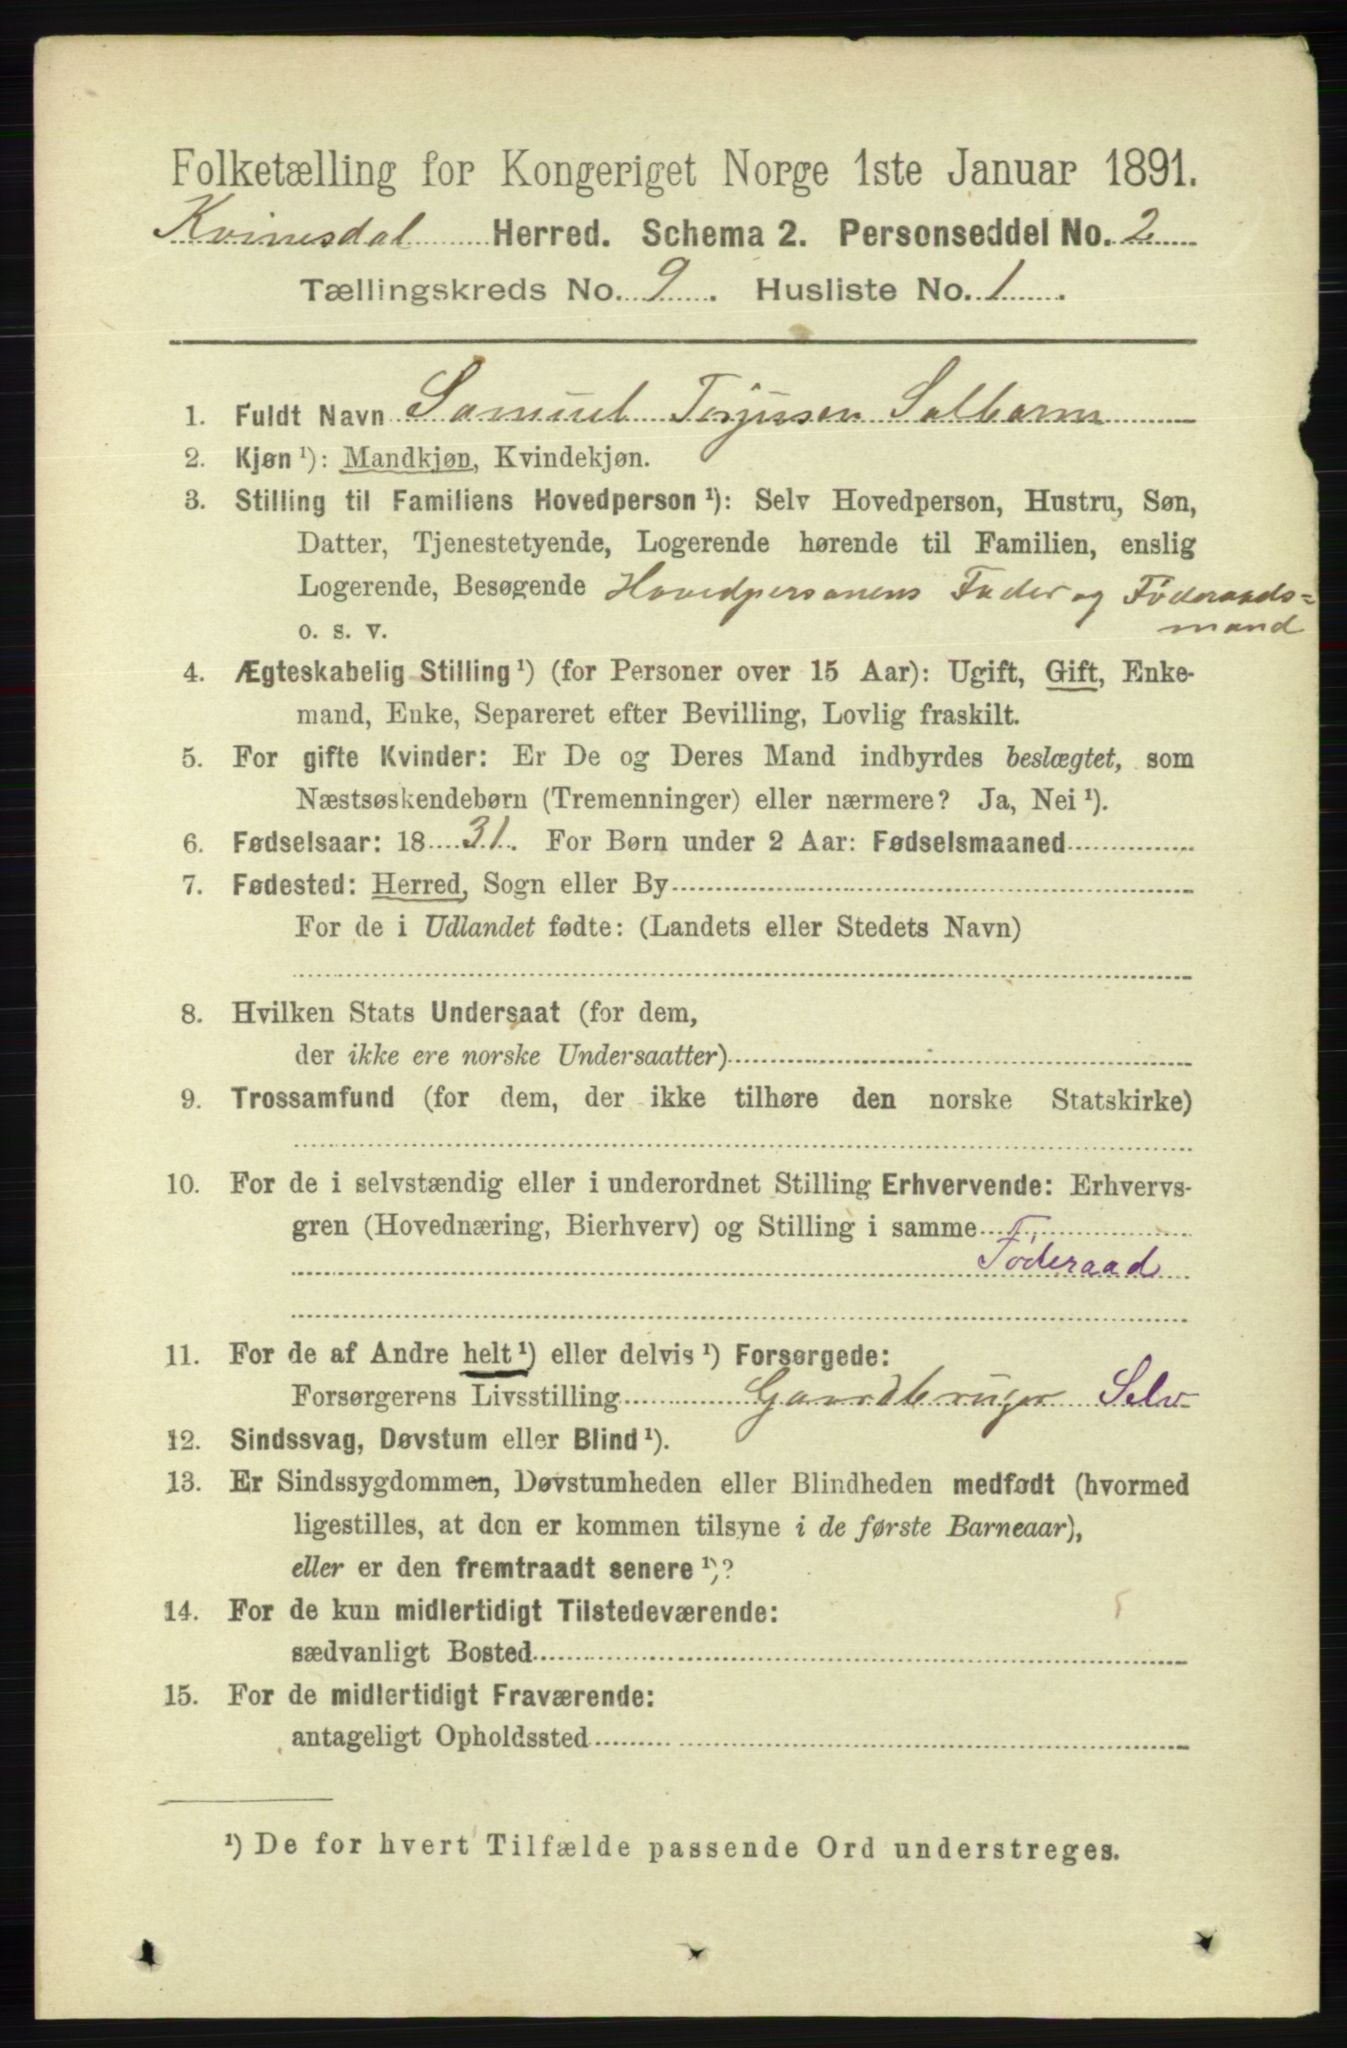 Folketælling for Kongeriget Norge 1ste Januar 1891.
Kvinesdal Herred. Schema 2. Personseddel No. 2
Tællingskreds No. 9. Husliste No. 1.
1. Fuldt Navn Samuel Torjussen Salbarm
2. Kjøn ¹): Mandkjøn, Kvindekjøn.
3. Stilling til Familiens Hovedperson ¹): Selv Hovedperson, Hustru, Søn,
Datter, Tjenestetyende, Logerende hørende til Familien, enslig
Logerende, Besøgende Hovedpersonens Fader og Föderaads=
o. s. v. mand
4. Ægteskabelig Stilling ¹) (for Personer over 15 Aar): Ugift, Gift, Enke-
mand, Enke, Separeret efter Bevilling, Lovlig fraskilt.
5. For gifte Kvinder: Er De og Deres Mand indbyrdes beslægtet, som
Næstsøskendebørn (Tremenninger) eller nærmere? Ja, Nei ¹).
6. Fødselsaar: 18 31. For Børn under 2 Aar: Fødselsmaaned
7. Fødested: Herred, Sogn eller By
For de i Udlandet fødte: (Landets eller Stedets Navn)
8. Hvilken Stats Undersaat (for dem,
der ikke ere norske Undersaatter)
9. Trossamfund (for dem, der ikke tilhøre den norske Statskirke)
10. For de i selvstændig eller i underordnet Stilling Erhvervende: Erhvervs-
gren (Hovednæring, Bierhverv) og Stilling i samme
Föderaad
11. For de af Andre helt ¹) eller delvis ¹) Forsørgede:
Forsørgerens Livsstilling Gaardbruger Selv
12. Sindssvag, Døvstum eller Blind ¹).
13. Er Sindssygdommen, Døvstumheden eller Blindheden medfødt (hvormed
ligestilles, at den er kommen tilsyne i de første Barneaar),
eller er den fremtraadt senere ¹)?
14. For de kun midlertidigt Tilstedeværende:
sædvanligt Bosted
15. For de midlertidigt Fraværende:
antageligt Opholdssted
¹) De for hvert Tilfælde passende Ord understreges.